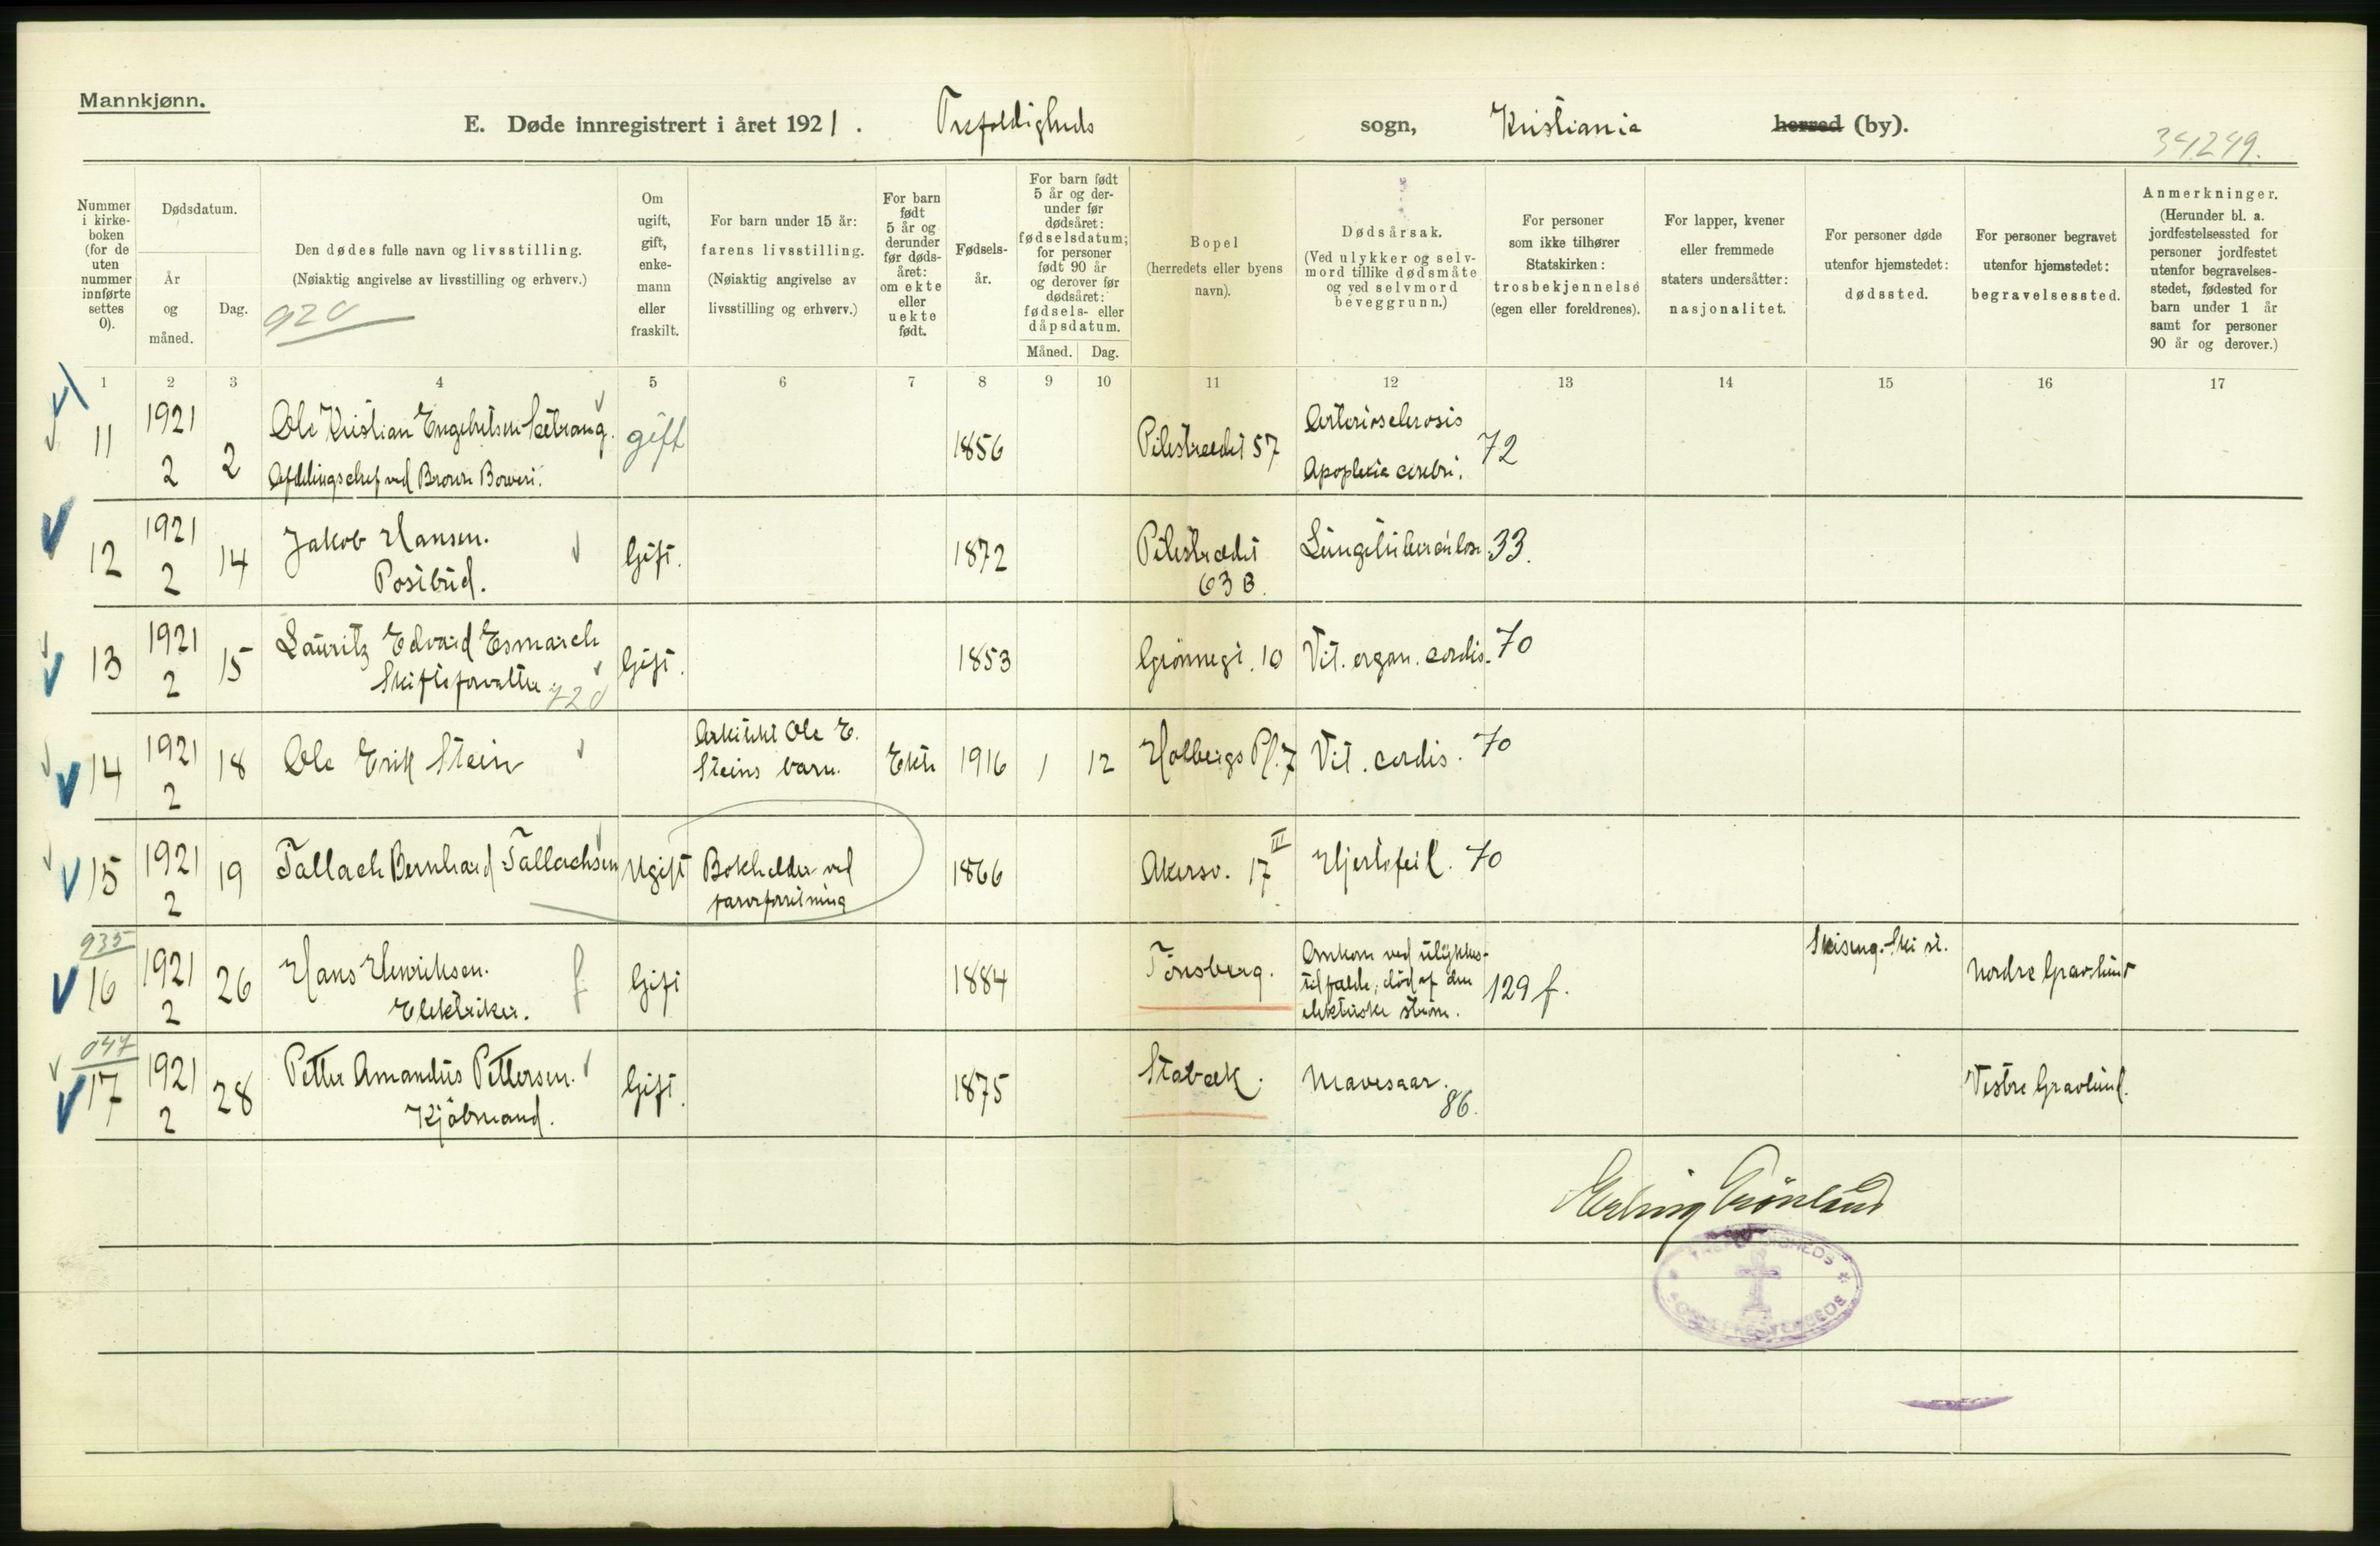 Mannkjønn.
E. Døde innregistrert i året 1921. Trefoldigheds sogn, Kristiania herred (by).
34249.
Nummer i kirke- boken (for de uten nummer innførte settes 0).
Dødsdatum.
År og måned.
Dag.
Den dødes fulle navn og livsstilling.
(Nøiaktig angivelse av livsstilling og erhverv.)
920
Om ugift, gift, enke- mann eller fraskilt.
For barn under 15 år:
farens livsstilling.
(Nøiaktig angivelse av
livsstilling og erhverv.)
For barn født 5 år og derunder før døds- året: om ekte eller uekte født.
Fødsels- år.
For barn født 5 år og der- under før dødsåret: fødselsdatum; for personer født 90 år og derover før dødsåret: fødsels- eller dåpsdatum.
Måned. Dag.
Bopel
(herredets eller byens
navn).
Dødsårsak.
(Ved ulykker og selv-
mord tillike dødsmåte
og ved selvmord
beveggrunn.)
For personer
som ikke tilhører
Statskirken:
trosbekjennelse
(egen eller foreldrenes).
For lapper, kvener
eller fremmede
staters undersåtter:
nasjonalitet.
For personer døde
utenfor hjemstedet:
dødssted.
For personer begravet
utenfor hjemstedet:
begravelsessted.
Anmerkninger.
(Herunder bl. a.
jordfestelsessted for
personer jordfestet
utenfor begravelses-
stedet, fødested for
barn under 1 år
samt for personer
90 år og derover.)
1 2 3 4 5 6 7 8 9 10 11 12 13 14 15 16 17
11 1921 2 2 Ole Kristian Engebretsen Sætrang. gift 1856 Pilestrædet 57 Arteriosclerosis 72
Afdelingschef ved Brown Boveri. Apoplexia cerebri.
12 1921 2 14 Jakob Hansen. Gift. 1872 Pilestrædet Lungetuberculose 33.
Postbud. 63 B.
13 1921 2 15 Lauritz Edvard Esmarch Gift. 1853 Grønnegt. 10 Vit. organ. cordis. 70
Skifteforvalter. 720
14 1921 2 18 Ole Erik Stein Arkitekt Ole E. Ekte 1916 1 12 Holbergs Pl. 7 Vit. cordis. 70
Steins barn.
15 1921 2 19 Tallach Bernhard Tallachsen Ugift Bokholder ved 1866 Akersv. 17 III Hjertefeil. 70
935
16 1921 2 26 Hans Henriksen. f Gift 1884 Tönsberg. Omkom ved ulykkes- 129 f. Skiseng. Ski st. Nordre Gravlund
Elektriker. tilfælde, död af den
elektriske ström.
047
17 1921 2 28 Petter Amandus Pettersen. Gift. 1875 Stabæk. Mavesaar. 86. Vestre Gravlund.
Kjöbmand.
Erling Grönlund